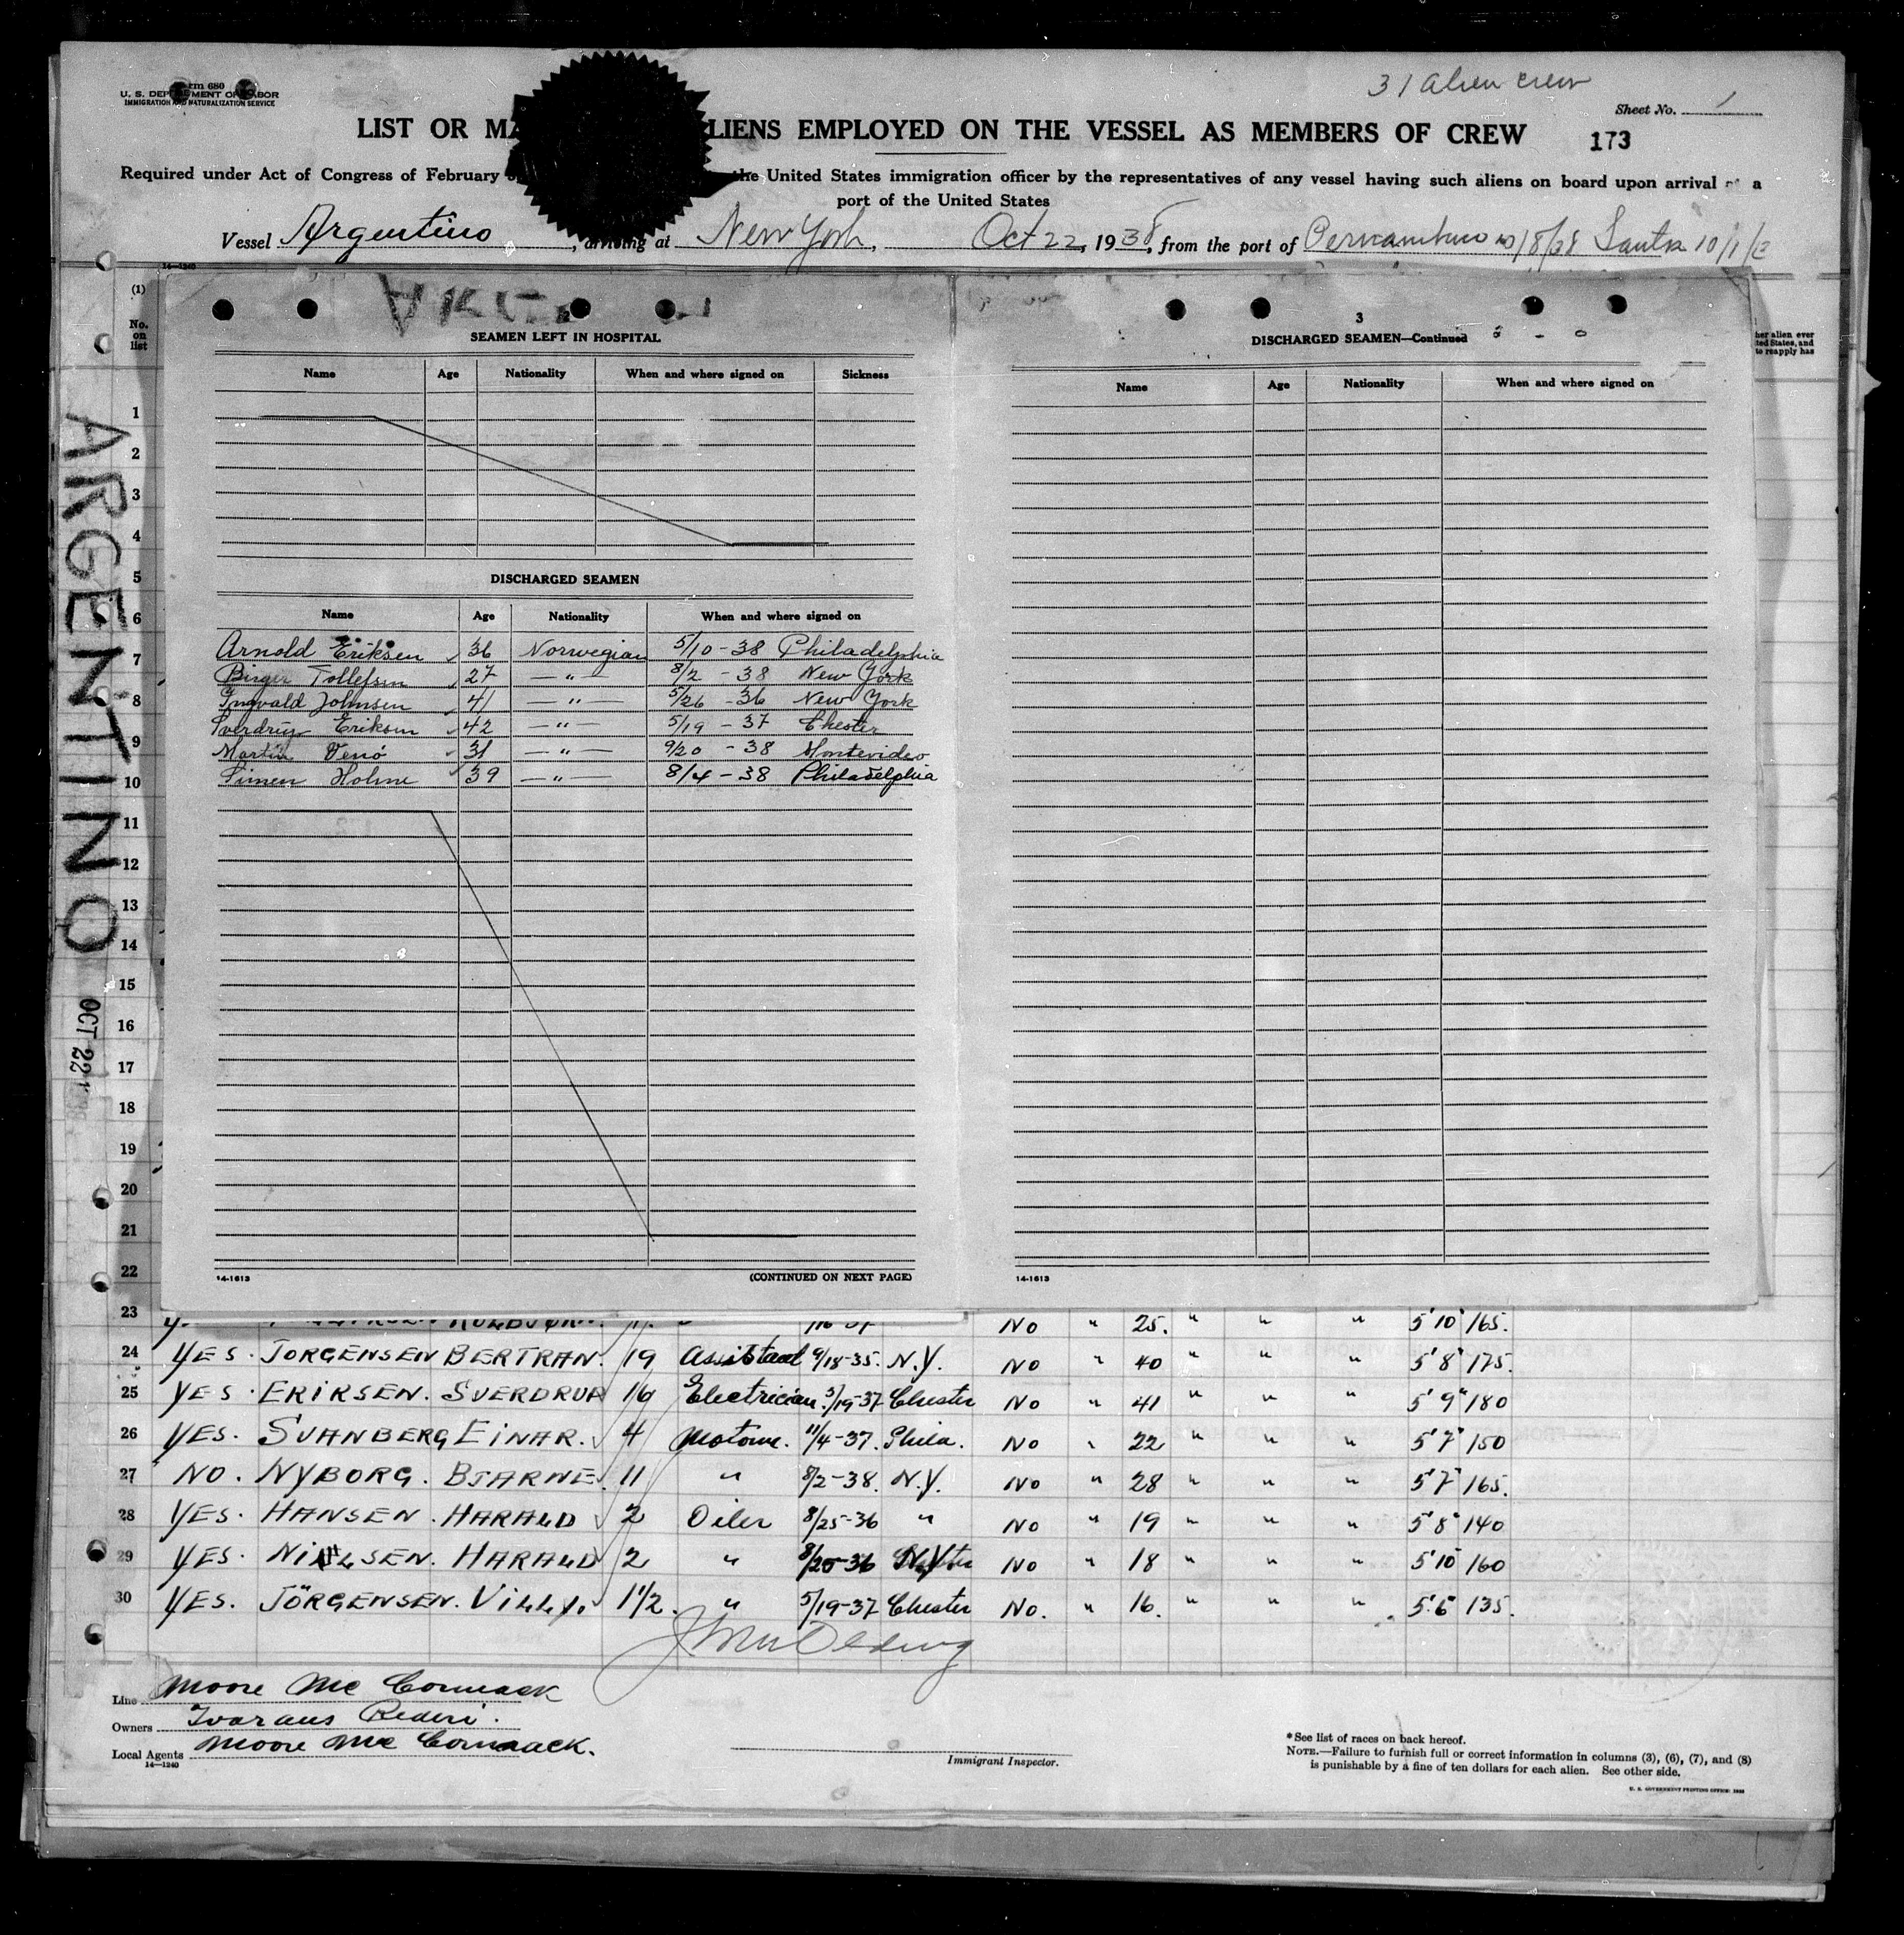 31 Alien crew
rm 680
U. S. DEP MENT OF LABOR
IMMIGRATION AND NATURALIZATION SERVICE
Sheet No. 1
LIST OR MA LIENS EMPLOYED ON THE VESSEL AS MEMBERS OF CREW
173
Required under Act of Congress of February the United States immigration officer by the representatives of any vessel having such aliens on board upon arrival at a
port of the United States
Vessel Argentino, arriving at New York, Oct 22, 1938, from the port of Pernambuco 10/8/38 Santos 10/1/3
14—1240
(1)
No.
on
list
her alien ever
ted States, and
to reapply has
ARGENTINO
OCT 22
1
2
3
4
5
6
7
8
9
10
11
12
13
14
15
16
17
18
19
20
21
22
23
SEAMEN LEFT IN HOSPITAL
Name Age Nationality When and where signed on Sickness
DISCHARGED SEAMEN
Name Age Nationality When and where signed on
Arnold Eriksen 36 Norwegian 5/10-38 Philadelphia
Birger Tollefsen 27 — " — 8/2 - 38 New York
Ingvald Johnsen 41 — " — 5/26 - 36 New York
Sverdrup Eriksen 42 — " — 5/19 - 37 Chester
Martin Venö 31 — " — 9/20 - 38 Montevideo
Simen Holme 39 — " — 8/4 - 38 Philadelphia
14-1613
(CONTINUED ON NEXT PAGE)
3
DISCHARGED SEAMEN—Continued
Name Age Nationality When and where signed on
14-1613
No " 25. " " " 5'10" 165.
24 YES. JORGENSEN BERTRAN. 19 Assistant 9/18-35. N.Y. No " 40 " " " 5'8" 175.
25 YES. ERIKSEN. SVERDRUP 16 Electrician. 5/19-37 Chester No " 41 " " " 5'9" 180
26 YES. SVANBERG EINAR. 4 Motorm. 11/4-37. Phila. No " 22 " " " 5'7" 150
27 NO. NYBORG. BJARNE. 11 " 8/2-38. N.Y. No " 28 " " " 5'7" 165.
28 YES. HANSEN. HARALD 2 Oiler 8/25-36 " No " 19 " " " 5'8" 140
29 YES. NIELSEN. HARALD 2 " 8/25-36 N.Y. No " 18 " " " 5'10" 160
30 YES. JÖRGENSEN. VILLY. 1 1/2. " 5/19-37 Chester No. " 16. " " " 5'6 135.
Line Moore Mc Cormack
Owners Ivarans Rederi.
Local Agents Moore Mc Cormack.
14—1240
Immigrant Inspector.
* See list of races on back hereof.
NOTE.—Failure to furnish full or correct information in columns (3), (6), (7), and (8)
is punishable by a fine of ten dollars for each alien. See other side.
U. S. GOVERNMENT PRINTING OFFICE